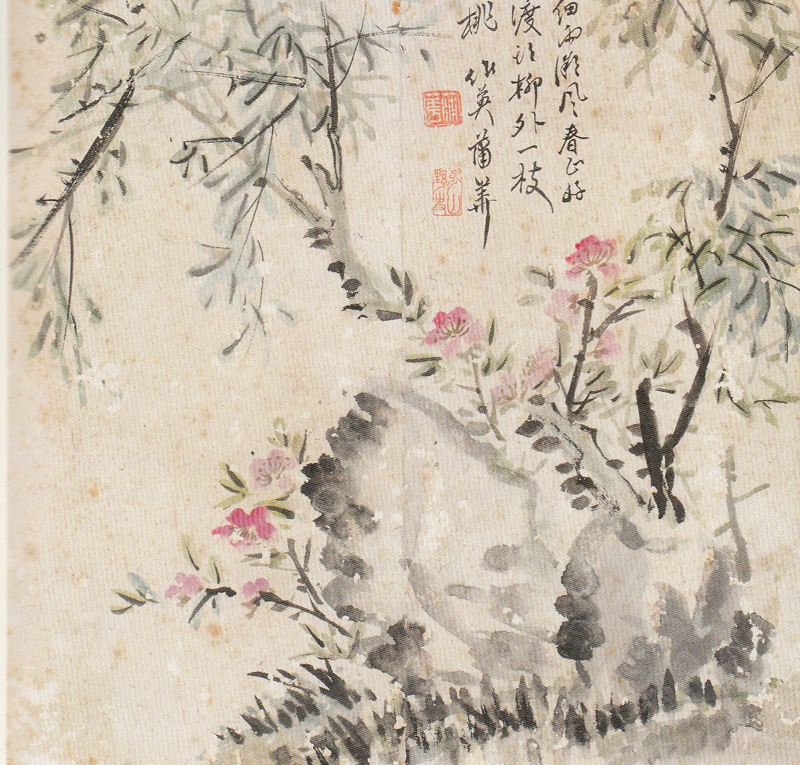 細雨風春正好
渡頭柳外一枝
桃 作英蒲華